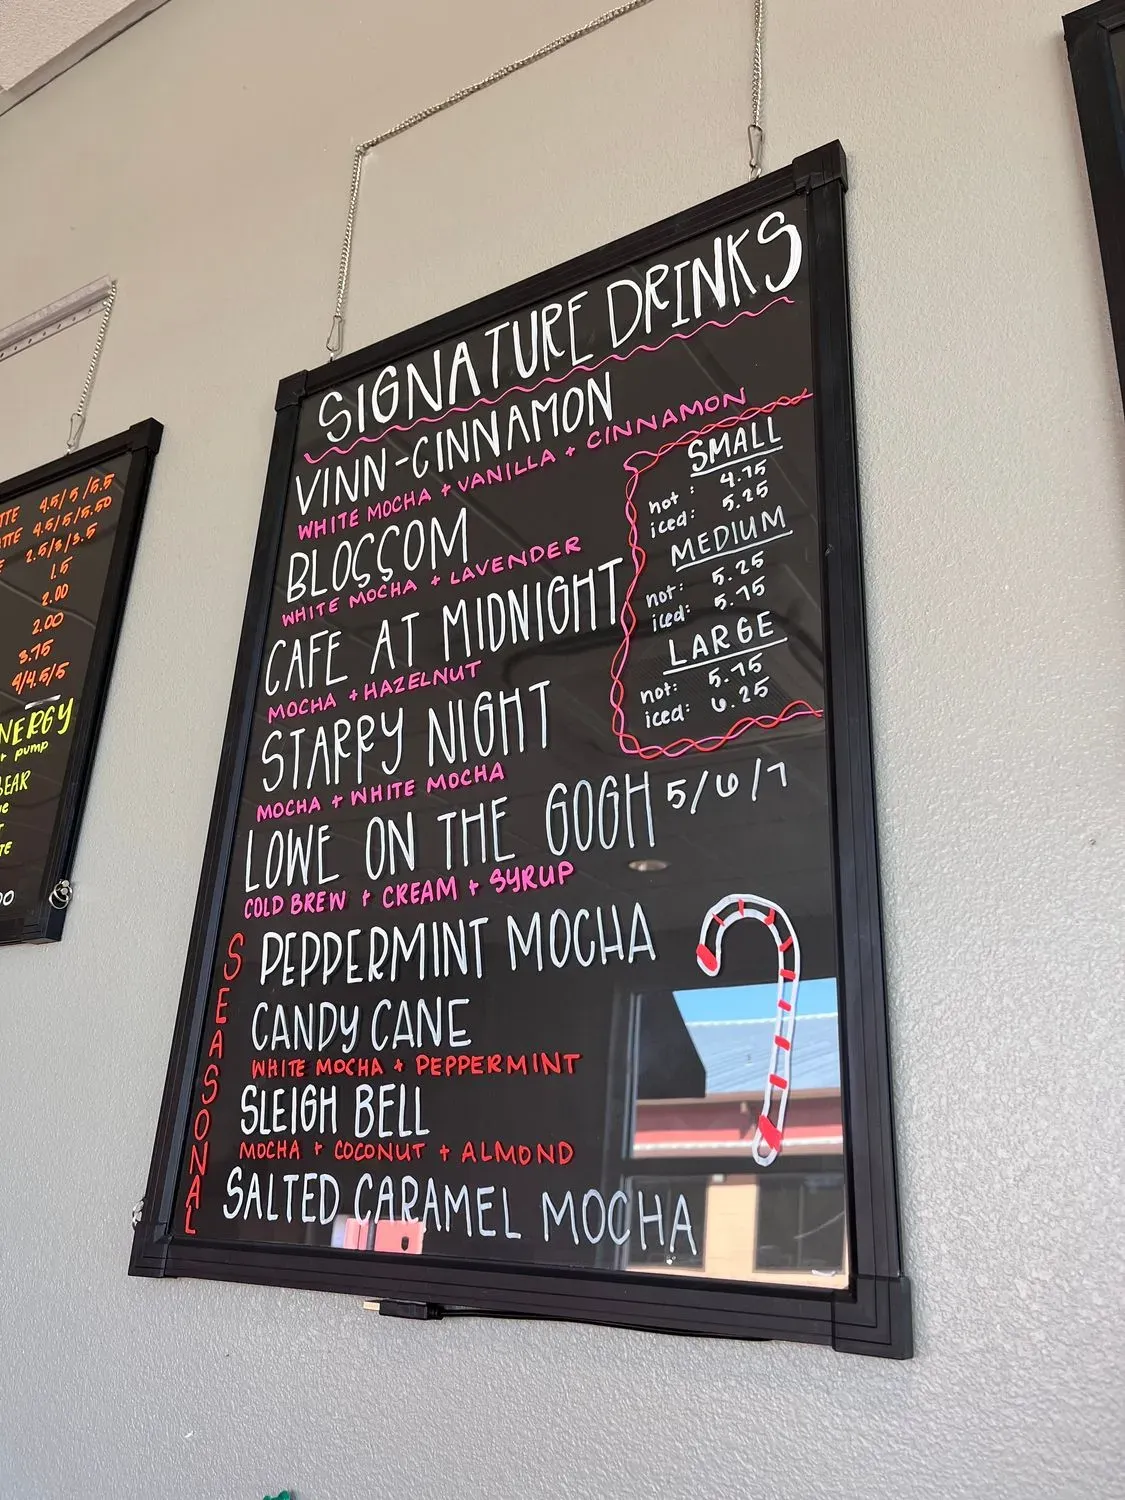 SIGNATURE DRINKS
VINN-CINNAMON
WHITE MOCHA + VANILLA + CINNAMON
BLOSSOM
WHITE MOCHA + LAVENDER
CAFE AT MIDNIGHT
MOCHA + HAZELNUT
STARRY NIGHT
MOCHA + WHITE MOCHA
LOWE ON THE GOGH 5/6/7
COLD BREW + CREAM + SYRUP
SMALL
hot: 4.75
iced: 5.25
MEDIUM
hot: 5.25
iced: 5.75
LARGE
hot: 5.75
iced: 6.25
SEASONAL
PEPPERMINT MOCHA
CANDY CANE
WHITE MOCHA + PEPPERMINT
SLEIGH BELL
MOCHA + COCONUT + ALMOND
SALTED CARAMEL MOCHA
TTE 4.5/5/5.5
TTE 4.5/5/5.50
E 2.5/3/3.5
1.5
2.00
2.00
3.75
4/4.5/5
NERGY
+ pump
BEAR